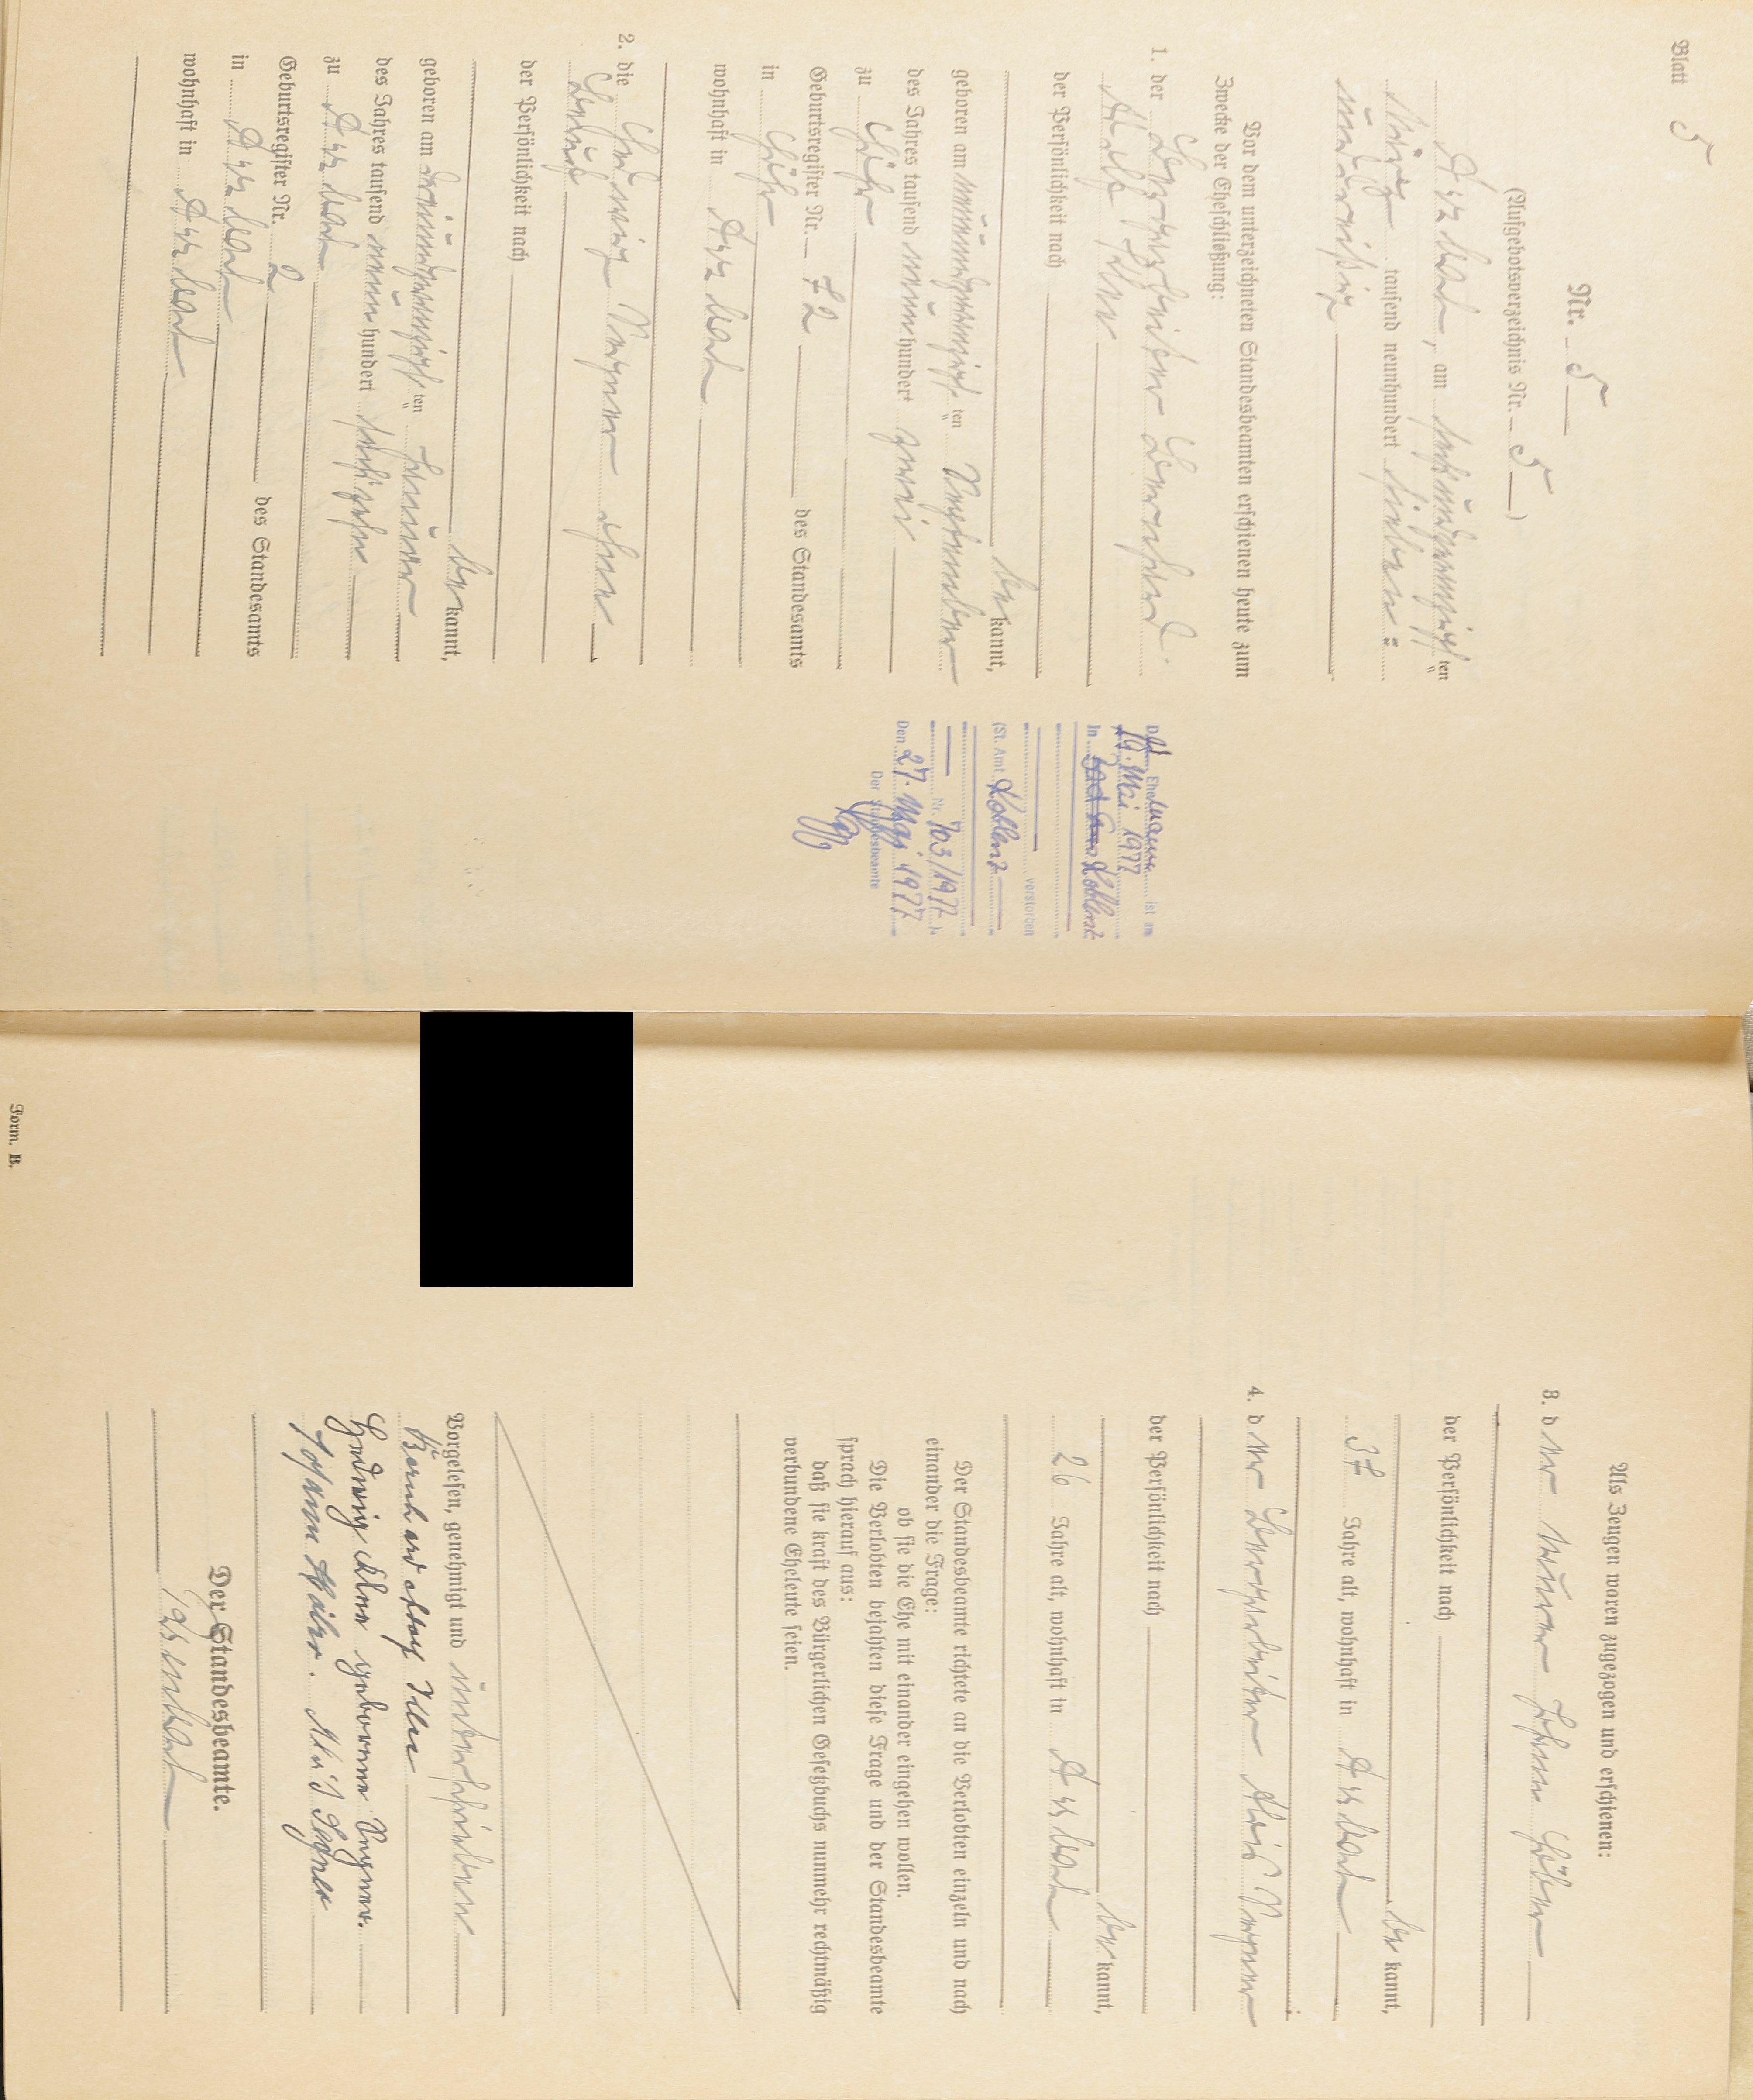 Blatt 5
Nr. 5
(Aufgebotsverzeichnis Nr. 5)
am sechsundzwanzigsten
März tausend neunhundert sieben:
unddreißig
Vor dem unterzeichneten Standesbeamten erschienen heute zum
Zwecke der Eheschließung:
1. der Bernhard
Adolf
der Persönlichkeit nach
bekannt,
geboren am neunundzwanzigsten September
des Jahres tausend neunhundert zwei
zu Löhr
Geburtsregister Nr. 72 des Standesamts
in Löhr
wohnhaft in
2. die Hedwig Wegner ohne
Beruf
der Persönlichkeit nach
bekannt,
geboren am dreiundzwanzigsten Januar
des Jahres tausend neunhundert sechszehn
zu
Geburtsregister Nr. 2 des Standesamts
in
wohnhaft in
Der Ehemann ist am
Mai 1977
In Koblenz
verstorben
(St. Amt Koblenz
Nr. 703/1977)
Den 27. Mai 1977
Der Standesbeamte
Als Zeugen waren zugezogen und erschienen:
3. der Maurer Johann
der Persönlichkeit nach
bekannt,
37 Jahre alt, wohnhaft in
4. der Alois Wegner
der Persönlichkeit nach
bekannt,
26 Jahre alt, wohnhaft in
Der Standesbeamte richtete an die Verlobten einzeln und nach
einander die Frage:
ob sie die Ehe mit einander eingehen wollen.
Die Verlobten bejahten diese Frage und der Standesbeamte
sprach hierauf aus:
daß sie kraft des Bürgerlichen Gesetzbuchs nunmehr rechtmäßig
verbundene Eheleute seien.
Vorgelesen, genehmigt und unterschrieben
Bernhard Adolf
Hedwig geborene Wegner.
Johann
Der Standesbeamte.
Form. B.